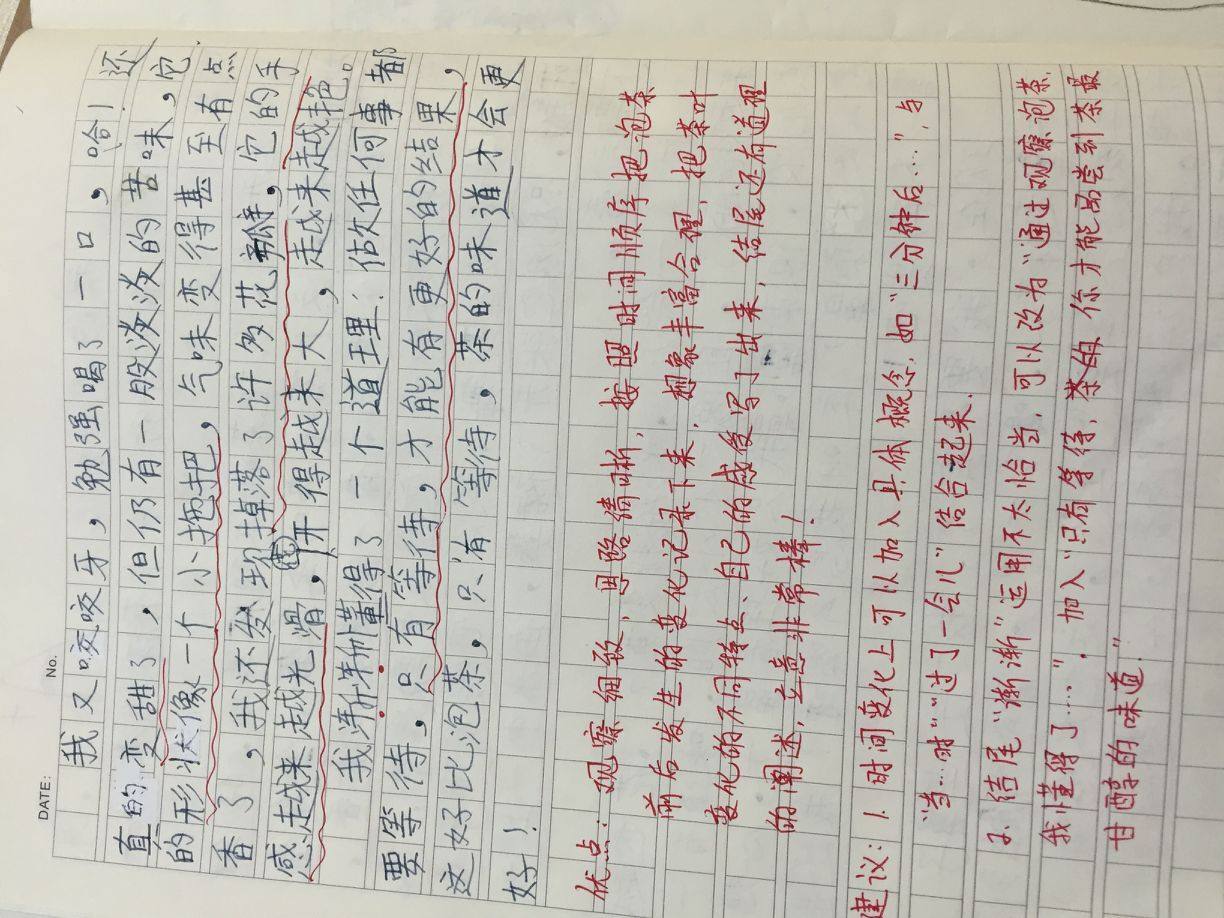 DATE: No.
我又咬咬牙，勉强喝了一口，哈！还
真的变甜了，但仍有一股淡淡的苦味，它
的形状像一个小拖把，气味变得甚至有点
香了，我还发现掉落了许多花瓣，它的手
感越来越光滑，花开得越来越大，越来越艳。
我渐渐懂得了一个道理：做任何事都
要等待，只有等待，才能有更好的结果，
这好比泡茶，只有等待，茶的味道才会更
好！
优点：观察细致，思路清晰，按照时间顺序把泡茶
前后发生的变化记录下来，想象丰富合理，把茶叶
变化的不同特点、自己的感受写了出来，结尾还有道理
的阐述，立意非常棒！
建议：1. 时间变化上可以加入具体概念，如“三分钟后……”，与
“当…时”“过了一会儿”结合起来．
2. 结尾“渐渐”运用不太恰当，可以改为“通过观察泡茶，
我懂得了……”，加入“只有等待，你才能品尝到茶最
甘醇的味道．”